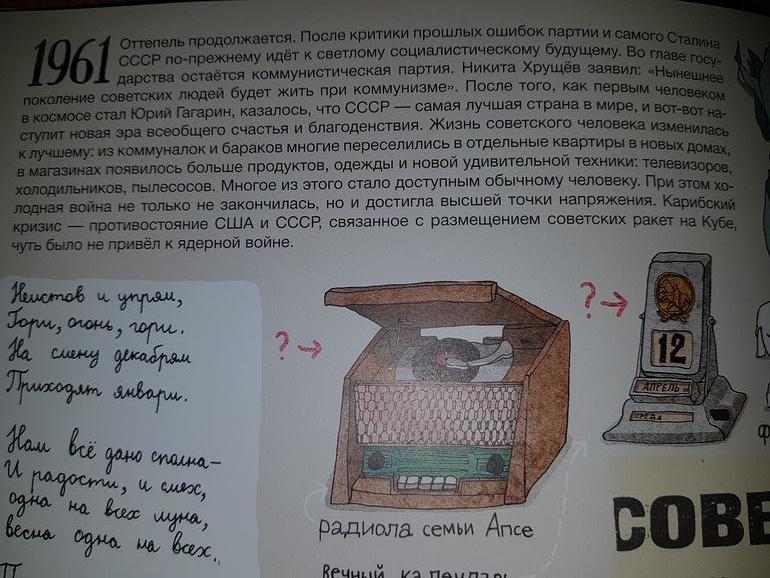 1961
Оттепель продолжается. После критики прошлых ошибок партии и самого Сталина
СССР по-прежнему идёт к светлому социалистическому будущему. Во главе госу-
дарства остаётся коммунистическая партия. Никита Хрущёв заявил: «Нынешнее
поколение советских людей будет жить при коммунизме». После того, как первым человеком
в космосе стал Юрий Гагарин, казалось, что СССР — самая лучшая страна в мире, и вот-вот на-
ступит новая эра всеобщего счастья и благоденствия. Жизнь советского человека изменилась
к лучшему: из коммуналок и бараков многие переселились в отдельные квартиры в новых домах,
в магазинах появилось больше продуктов, одежды и новой удивительной техники: телевизоров,
холодильников, пылесосов. Многое из этого стало доступным обычному человеку. При этом хо-
лодная война не только не закончилась, но и достигла высшей точки напряжения. Карибский
кризис — противостояние США и СССР, связанное с размещением советских ракет на Кубе,
чуть было не привёл к ядерной войне.
Неистов и упрям,
Гори, огонь, гори.
На смену декабрям
Приходят январи.
Нам всё дано сполна —
И радости, и смех,
одна на всех луна,
весна одна на всех.
П
? →
радиола семьи Апсе
вечный календарь
? →
12
АПРЕЛЬ
СРЕДА
Ф
СОВЕ